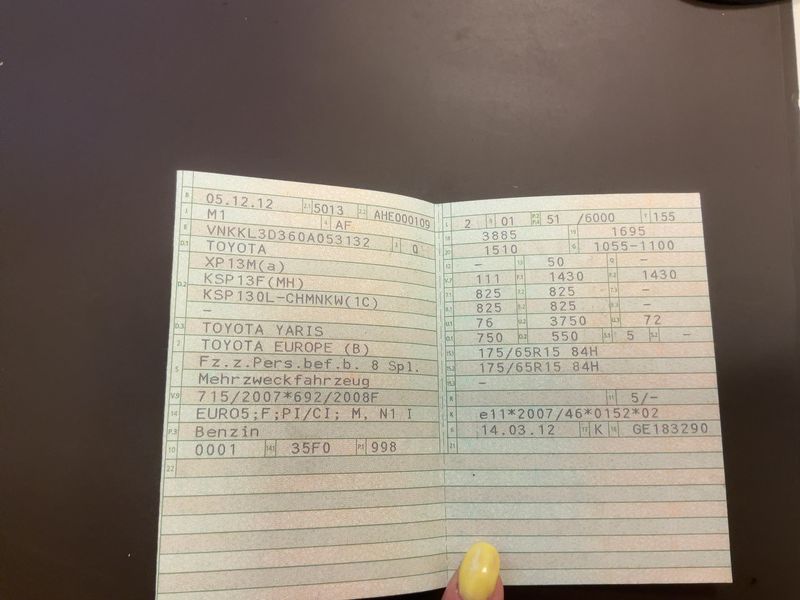 B 05.12.12 2.1 5013 2.2 AHE000109
J M1 4 AF
E VNKKL3D360A053132 3 Q
D.1 TOYOTA
XP13M(a)
D.2 KSP13F(MH)
KSP130L-CHMNKW(1C)
–
D.3 TOYOTA YARIS
2 TOYOTA EUROPE (B)
5 Fz.z.Pers.bef.b. 8 Spl.
Mehrzweckfahrzeug
V.9 715/2007*692/2008F
14 EURO5;F;PI/CI; M, N1 I
P.3 Benzin
10 0001 14.1 35F0 P.1 998
22
L 2 9 01 P.2 P.4 51 /6000 T 155
18 3885 19 1695
20 1510 G 1055-1100
12 – 13 50 Q –
V.7 111 F.1 1430 F.2 1430
7.1 825 7.2 825 7.3 –
8.1 825 8.2 825 8.3 –
U.1 76 U.2 3750 U.3 72
O.1 750 O.2 550 S.1 5 S.2 –
15.1 175/65R15 84H
15.2 175/65R15 84H
15.3 –
R 11 5/–
K e11*2007/46*0152*02
6 14.03.12 17 K 16 GE183290
21